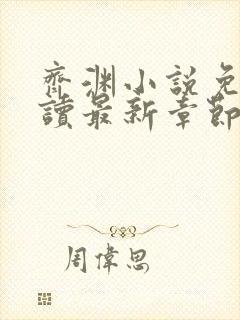 齊渊小說免
讀最新章節
周偉思